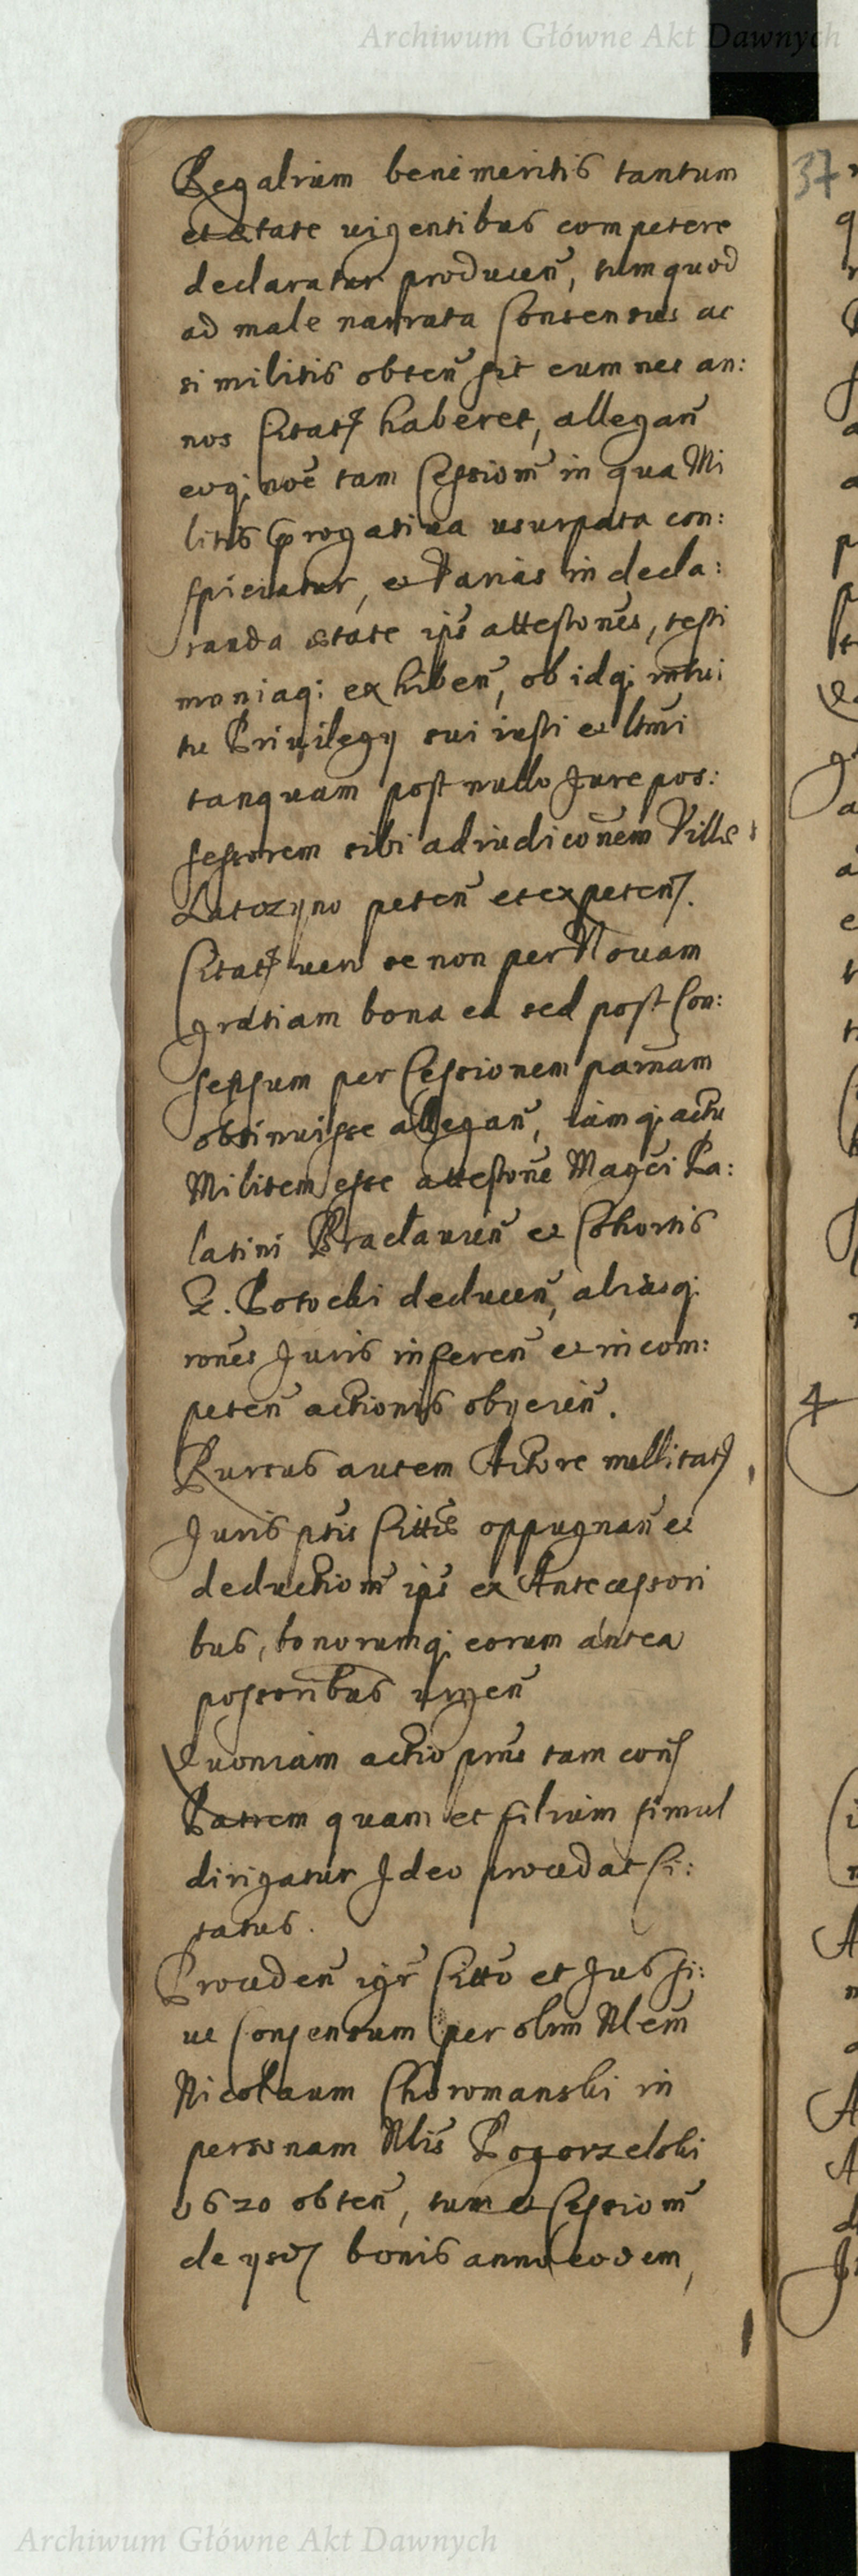 Archiwum Główne Akt Dawnych
37
Regalium benemeritis tantum
et ætate vigentibus competere
declaratur producen̄, tum quod
ad male narrata Consensus ac
si militis obten̄ sit cum nec an:
nos Citat9 haberet, allegan̄
eoq; noē tam Cession̄ in qua Mi
litis Prrogatiua usurpata con:
spiciatur, et Varias in decla:
randa ætate ips̄ attesto̅nes, testi
moniaq; exhiben̄, ob idq; intui
tu Priuilegy sui iusti et ltm̄i
tanquam post nullo Jure pos:
sessorem sibi adiudico̅nem Villæ
Latozyno peten̄ et expeten̄.
Citat9 uero se non per Nouam
gratiam bona ea sed post Con:
sensum per Cessionem pat̄nam
obtinuisse allegan̄, iamq; actu
Militem esse attesto̅ne Magc̄i Pa:
latini Braclauien̄ et Cohortis
P. Potocki deducen̄, aliasq;
ro̅nes Juris inferen̄ et incom:
peten̄ actionis obycien̄.
Rursus autem Actore nullitat
Juris ptis̄ Cittæ oppugnan̄ et
deduction̄ ips̄ ex Antecessori
bus, bonorumq; eorum antea
possoribus urgen̄
Quoniam actio pm̄s tam con
Patrem quam et filium simul
dirigatur Ideo procedat Ci:
tatus.
Proceden̄ igr̄ Citto̅ et Jus si:
ue Consensum per olim Nlem̄
Nicolaum Choromanski in
personam Nlis̄ Pogorzelski
1620 obten̄, tum et Cession̄
de ysd bonis anno eodem,
4
Archiwum Główne Akt Dawnych